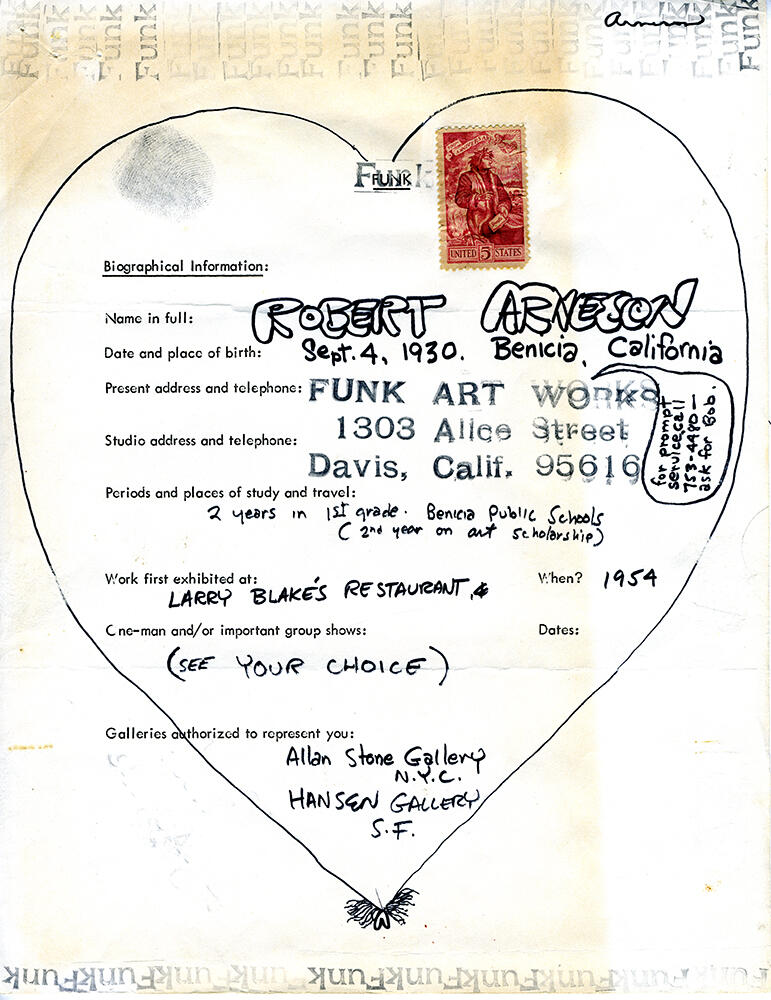 Funk Funk Funk Funk Funk Funk Funk Funk Funk Funk
Arneson
Funk
FUNK
UNITED 5 STATES
Biographical Information:
Name in full: ROBERT ARNESON
Date and place of birth: Sept. 4, 1930. Benicia, California
Present address and telephone: FUNK ART WORKS
1303 Alice Street
Studio address and telephone:
Davis, Calif. 95616
for prompt
service, call
753-4480 —
ask for Bob.
Periods and places of study and travel:
2 years in 1st grade. Benicia Public Schools
(2nd year on art scholarship)
Work first exhibited at: When? 1954
LARRY BLAKE'S RESTAURANT, &
One-man and/or important group shows: Dates:
(SEE YOUR CHOICE)
Galleries authorized to represent you:
Allan Stone Gallery
N.Y.C.
HANSEN GALLERY
S.F.
Funk Funk Funk Funk Funk Funk Funk Funk Funk Funk